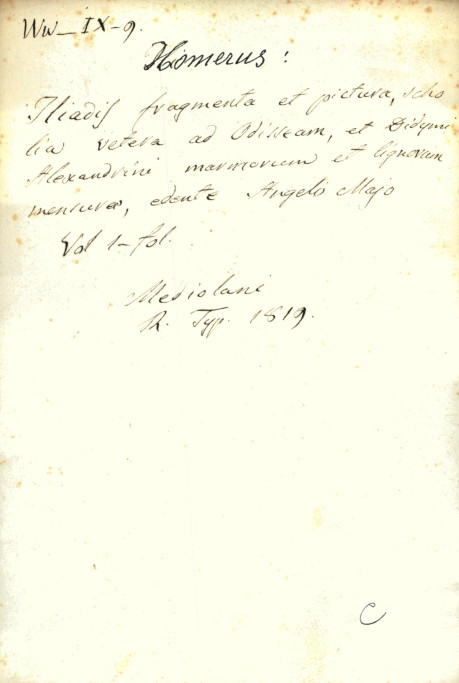 Ww_IX-9.
Homerus :
Iliadis fragmenta et pictura, scho
lia vetera ad Odisseam, et Didymi
Alexandrini marmorum et lignorum
mensurae, edente Angelo Majo
Vol 1-fol.
Mediolani
R. Typ. 1819.
C